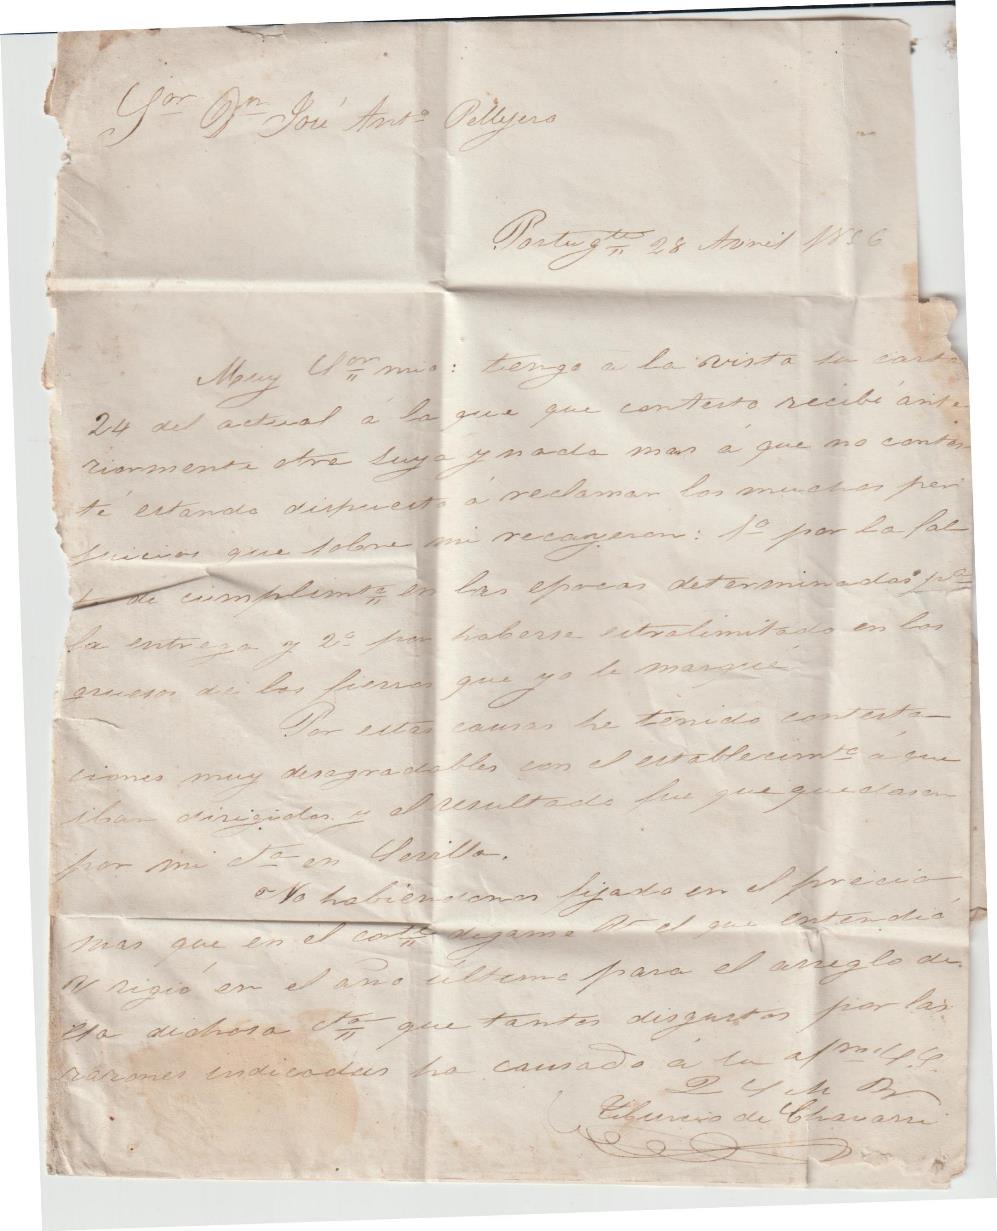 Sor Dn José Anto Pellejero
Portugte 28 Avril 1856
Muy Sor mio: tengo a la vista su carta
24 del actual á la que que contesto recibí ante
riormente otra suya y nada mas á que no contes
té estando dispuesto á reclamar los muchos per
juicios que sobre mi recayeron: 1o por la fal
ta de cumplimto en las epocas determinadas pa
la entrega y 2o por haberse estralimitado en los
gruesos de los fierros que yo le marqué
Por estas causas he tenido contesta-
ciones muy desagradables con el establecimto á que
iban dirigidos y el resultado fue que quedasen
por mi cta en Sevilla.
No habiendonos fijado en el precio
mas que en el digame V el que entendió
V rigió en el año último para el arreglo de
esta dichosa cta que tantos disgustos por las
razones indicadas ha causado á su afmo S. S.
Q S M B
Tiburcio de Chavarri